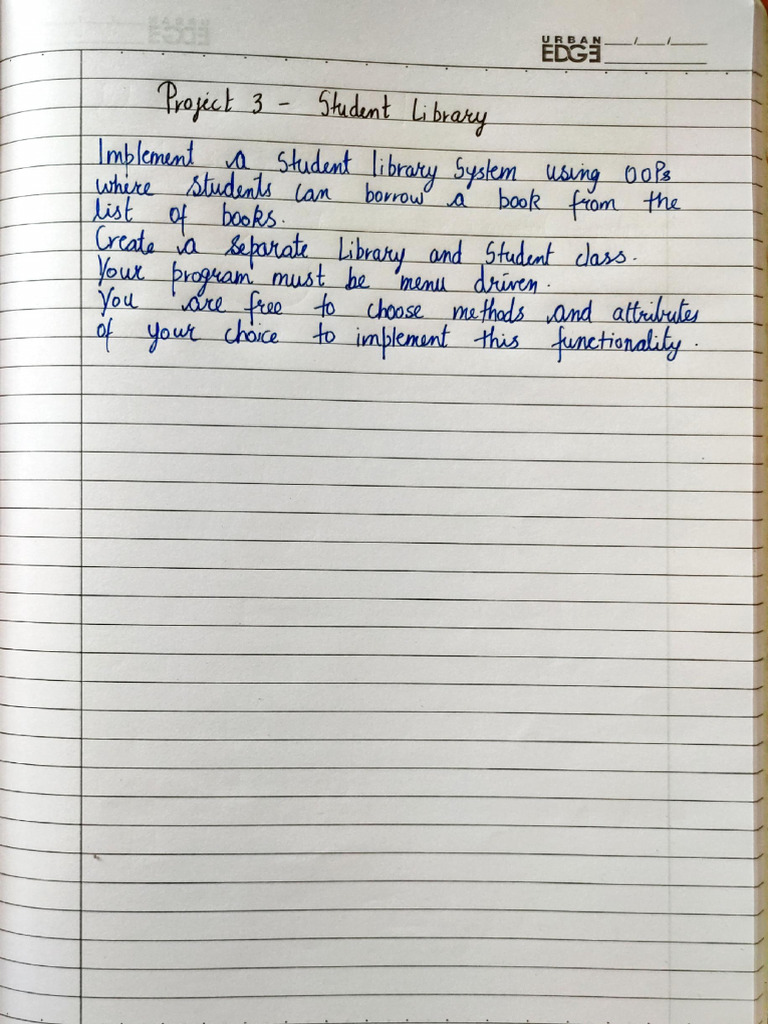 URBAN
EDGE
Project 3 - Student Library
Implement a Student library System using OOPs
where students can borrow a book from the
list of books.
Create a separate Library and Student class.
Your program must be menu driven.
You are free to choose methods and attributes
of your choice to implement this functionality.